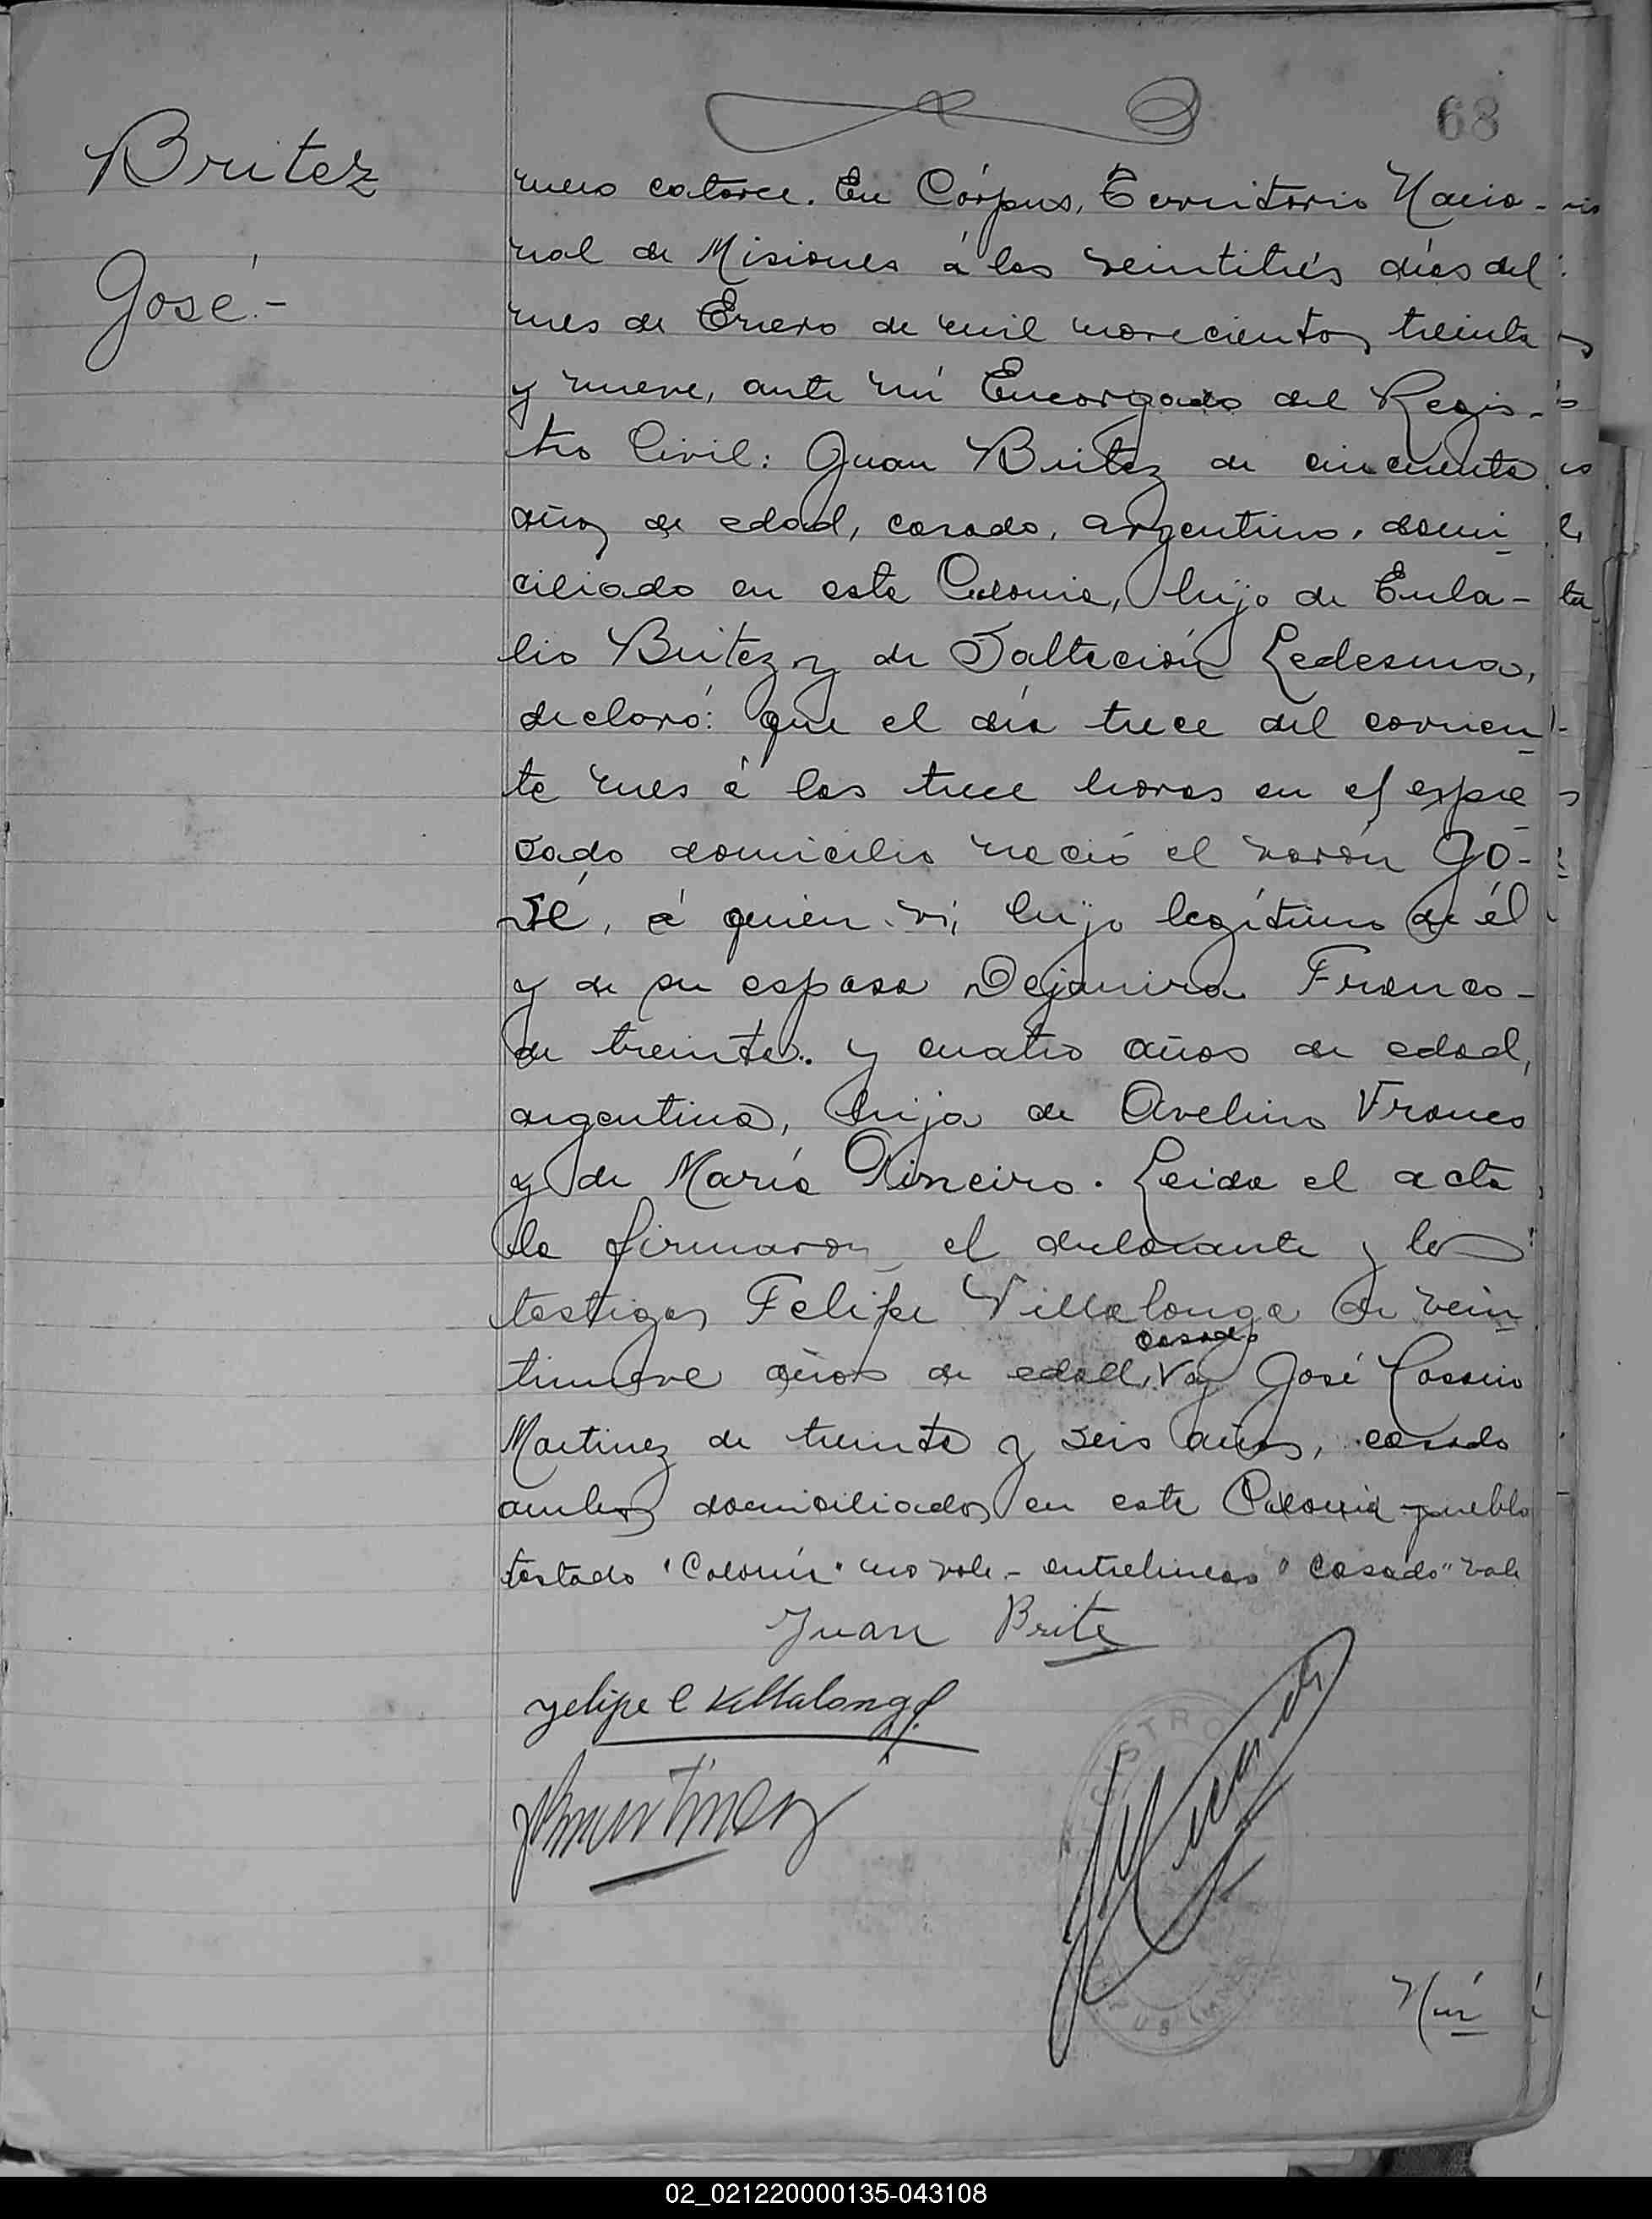 68
Britez
José.-
mero catorce. En Córpus, Territorio Nacio-
nal de Misiones á los veintitrés días del
mes de Enero de mil novecientos treinta
y nueve, ante mí Encargado del Regis-
tro Civil: Juan Britez de cincuenta
años de edad, casado, argentino, domi-
ciliado en esta Colonia, hijo de Eula-
lio Britez y de Ledesma,
declaró: que el día trece del corrien-
te mes á las trece horas en el expre-
sado domicilio nació el varón Jo-
sé, á quien ví, hijo legítimo de él
y de su esposa Dejanira Franco-
de treinta y cuatro años de edad,
argentina, hija de Avelino Franco
y de María . Leida el acta
la firmaron el declarante y los
testigos Felipe Villalonga de vein-
casado
tinueve años de edad, y José
Martinez de treinta y seis años, casado
ambos domiciliados en este Colonia pueblo
testado "Colonia" no vale - entrelineas "casado" vale
Juan Brite
Felipe C Villalonga
JMartinez
Nú-
02_021220000135-043108